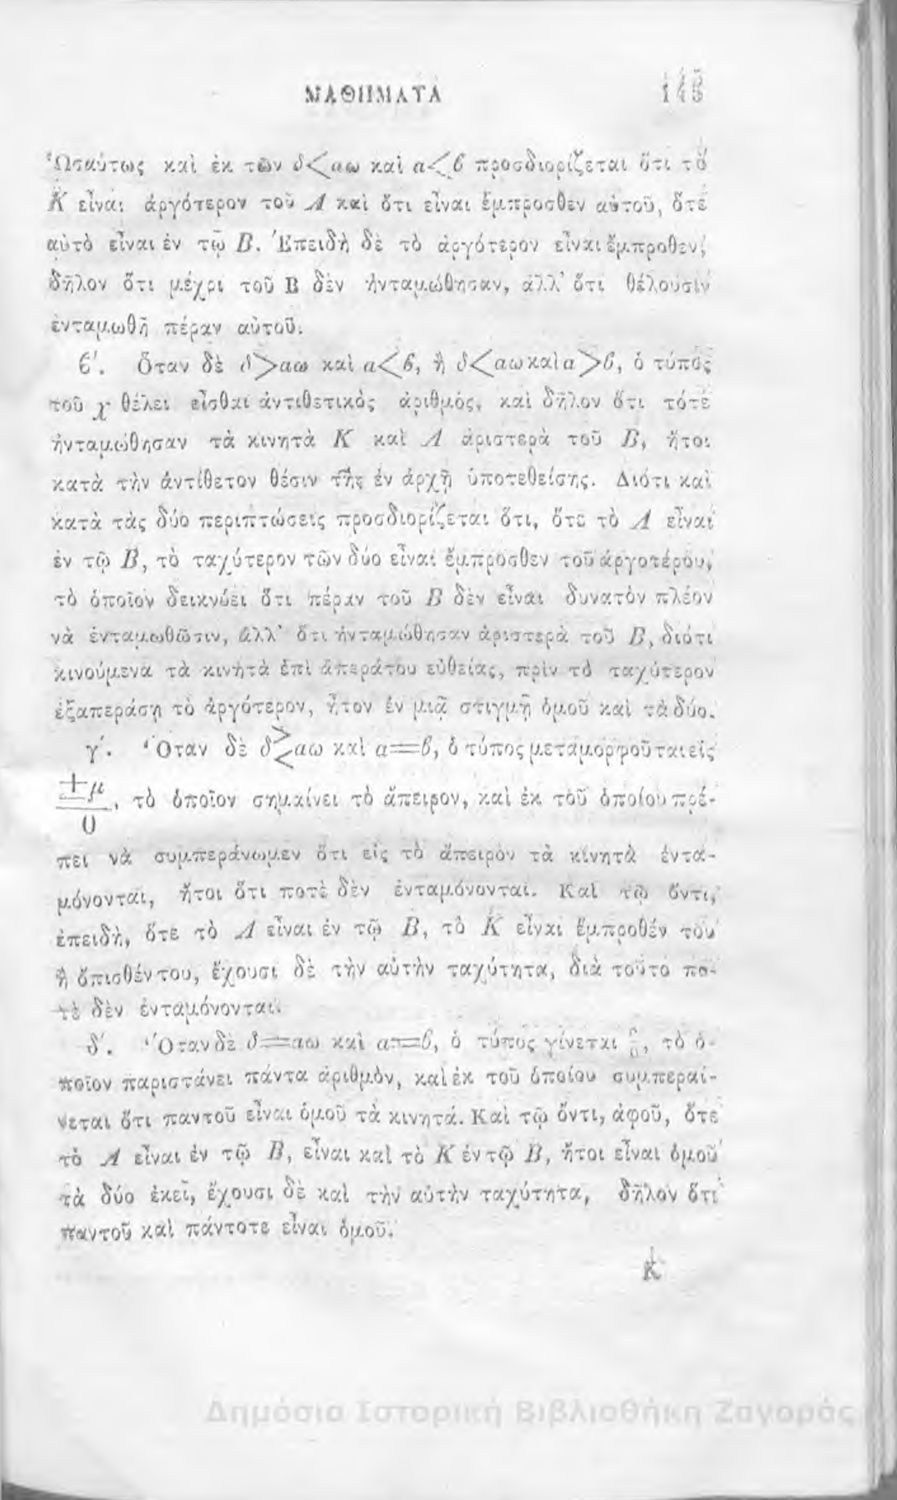 ΜΑΘΗΜΑΤΑ 145
Ὡσαύτως καὶ ἐκ τῶν δ<αω καὶ α<β προσδιορίζεται ὅτι τὸ
Κ εἶναι ἀργότερον τοῦ Λ καὶ ὅτι εἶναι ἔμπροσθεν αὐτοῦ, ὅτε
αὐτὸ εἶναι ἐν τῷ Β. Ἐπειδὴ δὲ τὸ ἀργότερον εἶναι ἔμπροθεν,
δῆλον ὅτι μέχρι τοῦ Β δὲν ἠνταμώθησαν, ἀλλ' ὅτι θέλουσιν
ἐνταμωθῆ πέραν αὐτοῦ.
β'. ὅταν δὲ δ>αω καὶ α<β, ἢ δ<αω καὶ α>β, ὁ τύπος
τοῦ χ θέλει εἶσθαι ἀντιθετικὸς ἀριθμὸς, καὶ δῆλον ὅτι τότε
ἠνταμώθησαν τὰ κινητὰ Κ καὶ Λ ἀριστερὰ τοῦ Β, ἤτοι
κατὰ τὴν ἀντίθετον θέσιν τῆς ἐν ἀρχῇ ὑποτεθείσης. Διότι καὶ
κατὰ τὰς δύο περιπτώσεις προσδιορίζεται ὅτι, ὅτε τὸ Λ εἶναι
ἐν τῷ Β, τὸ ταχύτερον τῶν δύο εἶναι ἔμπροσθεν τοῦ ἀργοτέρου,
τὸ ὁποῖον δεικνύει ὅτι πέραν τοῦ Β δὲν εἶναι δυνατὸν πλέον
νὰ ἐνταμωθῶσιν, ἀλλ' ὅτι ἠνταμώθησαν ἀριστερὰ τοῦ Β, διότι
κινούμενα τὰ κινητὰ ἐπὶ ἀπεράτου εὐθείας, πρὶν τὸ ταχύτερον
ἐξαπεράσῃ τὸ ἀργότερον, ἦτον ἐν μιᾷ στιγμῇ ὁμοῦ καὶ τὰ δύο.
γ'. Ὅταν δὲ δ≷αω καὶ α=β, ὁ τύπος μεταμορφοῦται εἰς
±μ/0, τὸ ὁποῖον σημαίνει τὸ ἄπειρον, καὶ ἐκ τοῦ ὁποίου πρέ-
πει νὰ συμπεράνωμεν ὅτι εἰς τὸ ἄπειρον τὰ κινητὰ ἐντα-
μόνονται, ἤτοι ὅτι ποτὲ δὲν ἐνταμόνονται. Καὶ τῷ ὄντι,
ἐπειδὴ, ὅτε τὸ Λ εἶναι ἐν τῷ Β, τὸ Κ εἶναι ἔμπροθέν του
ἢ ὄπισθέν του, ἔχουσι δὲ τὴν αὐτὴν ταχύτητα, διὰ τοῦτο πο-
τὲ δὲν ἐνταμόνονται.
δ'. Ὅταν δὲ δ=αω καὶ α=β, ὁ τύπος γίνεται 0/0, τὸ ὁ-
ποῖον παριστάνει πάντα ἀριθμὸν, καὶ ἐκ τοῦ ὁποίου συμπεραί-
νεται ὅτι παντοῦ εἶναι ὁμοῦ τὰ κινητά. Καὶ τῷ ὄντι, ἀφοῦ, ὅτε
τὸ Λ εἶναι ἐν τῷ Β, εἶναι καὶ τὸ Κ ἐν τῷ Β, ἤτοι εἶναι ὁμοῦ
τὰ δύο ἐκεῖ, ἔχουσι δὲ καὶ τὴν αὐτὴν ταχύτητα, δῆλον ὅτι
παντοῦ καὶ πάντοτε εἶναι ὁμοῦ.
Κ
Δημόσια Ιστορική Βιβλιοθήκη Ζαγοράς